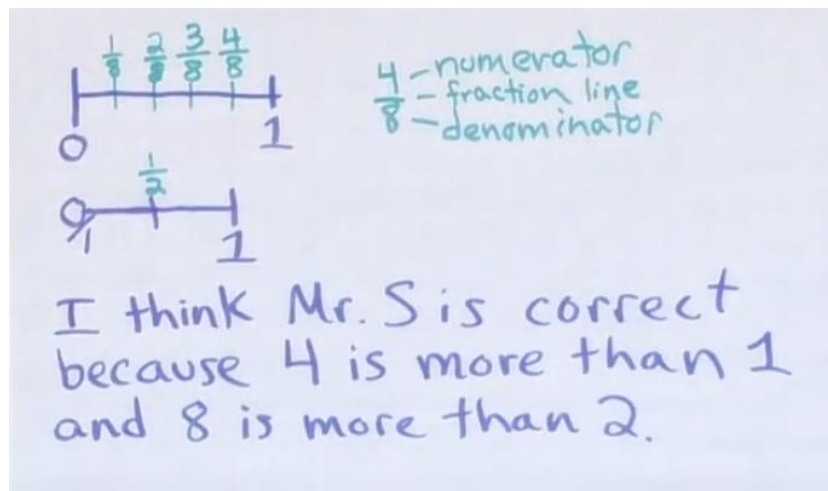 1/8 2/8 3/8 4/8
0 1
4/8 - numerator
- fraction line
- denominator
1/2
0 1
I think Mr. S is correct
because 4 is more than 1
and 8 is more than 2.